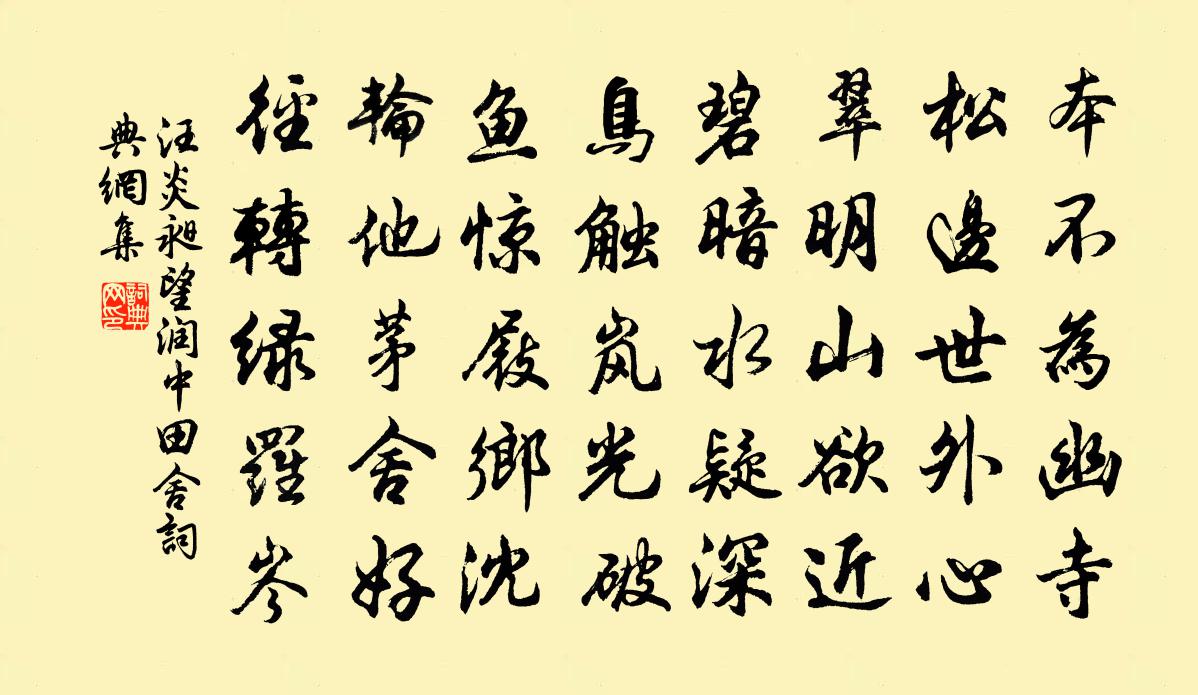 本不為幽寺
松邊世外心
翠明山欲近
碧暗水疑深
鳥触嵐光破
魚惊屐鄉沈
輪他茅舍好
徑轉绿羅岑
汪炎昶望润中田舍詞
典網集
詞典网印